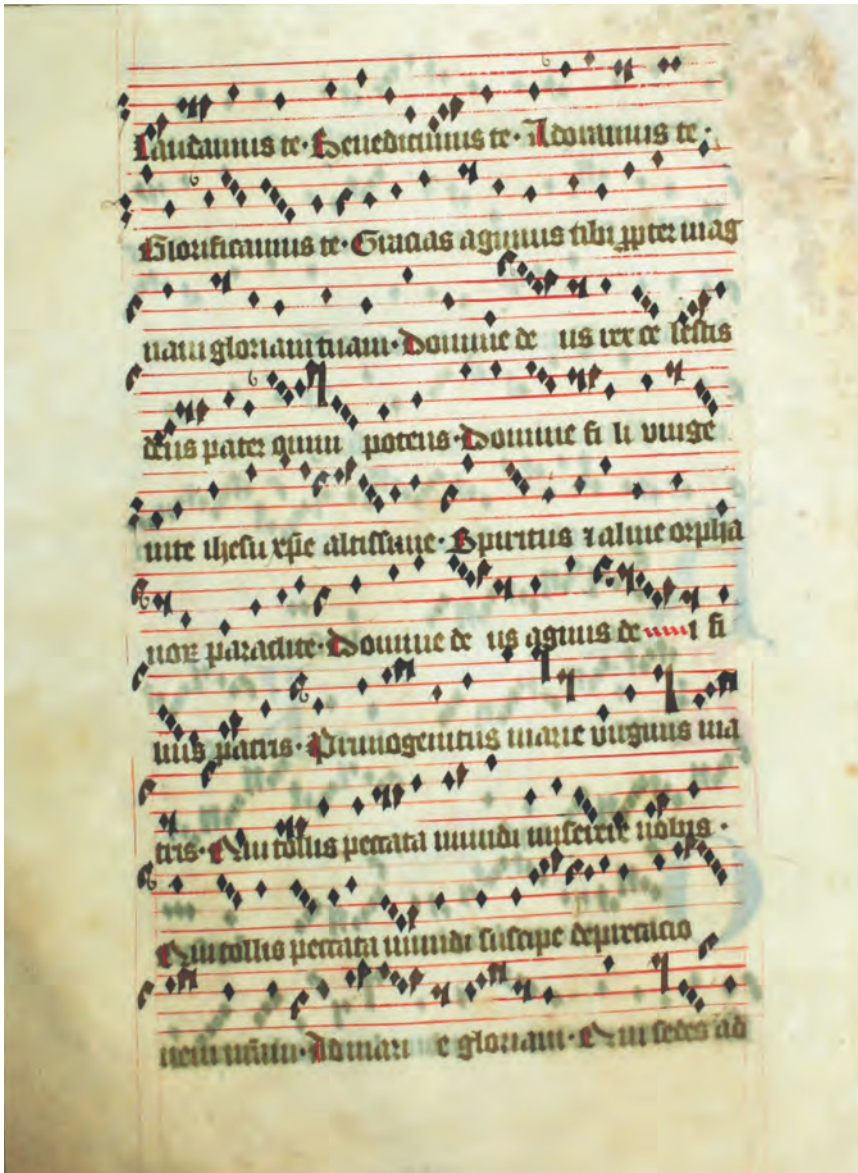 Laudamus te · Benedicimus te · Adoramus te ·
Glorificamus te · Gracias agimus tibi ꝓpter mag
nam gloriam tuam · Domine de us rex ce lestis
deus pater omni potens · Domine fi li vnige
nite ihesu xp̄e altissime · Spiritus ⁊ alme orpha
noꝝ paraclite · Domine de us agnus de i fi
lius patris · Primogenitus marie virginis ma
tris · Qui tollis peccata mundi miserere nobis ·
Qui tollis peccata mundi suscipe deprecacio
nem nr̄am · Ad mari e gloriam · Qui sedes ad